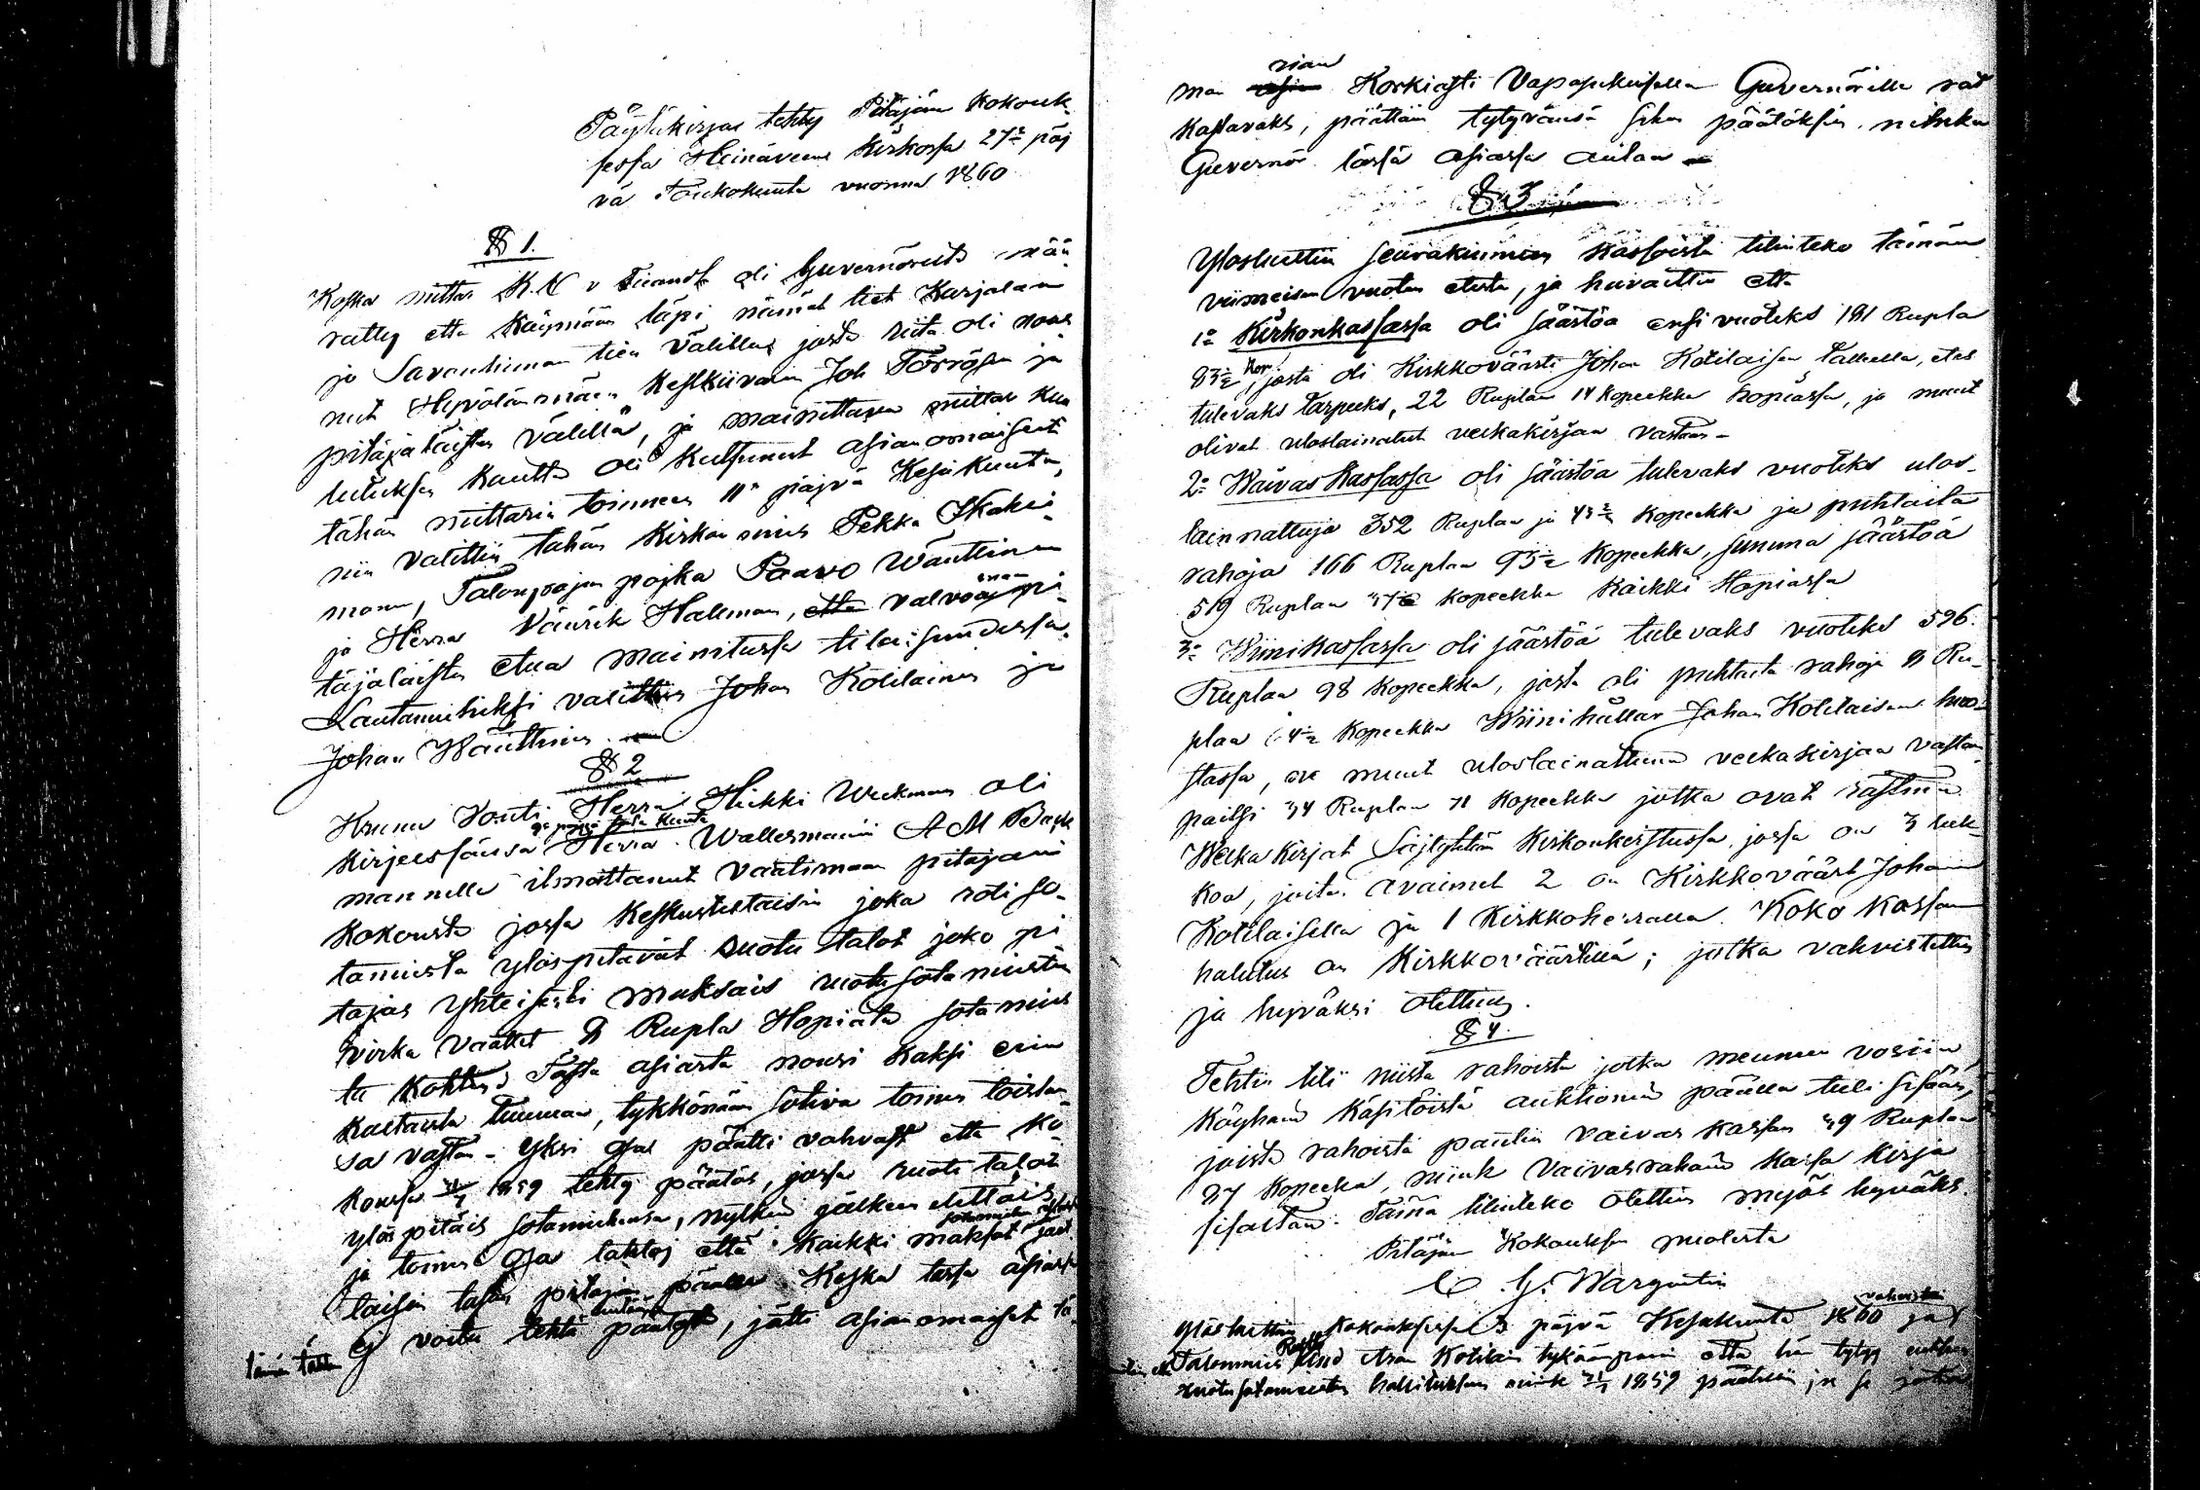 Päytäkirja tehty Pitäjän kokouk-
sessa Heinäveen Kirkossa 27ä päj
vä Toukokuuta vuonna 1860
§ 1.
Koska mittar K. N v Fieandt oli Guvernörildä mää
rätty että käymään läpi nämät tiet Karjalan
ja Savonlinnan tien välillä josta riita oli nous
nut Hypölänmäen Kestkiivarin Joh Törrösen ja
pitäjäläisten välillä, ja mainittava mittar kuu
lutuksen kautta oli kutsunut asianomaiset
tähän mittarin toimeen 11ä päjvä Kesäkuuta,
niin valittiin tähän Kirkon mies Pekka Ikähei-
monen, Talonpojan pojka Paavo Wänttinen
ja Herra Vänrik Hallman, valvomaan pi-
täjäläisten etua mainitussa tilaisuudessa.
Lautamiehiksi valittiin Johan Kotilainen ja
Johan Wänttinen.
§ 2
Kruunu Vouti Herra Heikki Weckman oli
kirjeessänsä Herra Wallesmanni A M Back
mannelle ilmottanut vaatimaan pitäjän
kokousta jossa keskusteltaisin joka roti so-
tamiesta ylöspitävät ruotu talot joko pi
täjäs yhteisesti maksais ruotu sotamiesten
virka vaattet 8 Rupla Hopiata sotamies
ta kohden Tästä asiasta nousi kaksi erin
kaltaista tuumaa, tykkönään sotiva toinen toistan
sa vastan - Yksi osa päätti vahvast että ko
kouksessa 1859 tehty päätös, jossa ruotu talot
ylös pitäis sotamiehensä, nytkin jälkeen elettäis,
ja toinen osa tahtoj että kaikki maksot jaet
taisiin tasan pitäjän päälle Koska tässä asiassa
ej voitu tehdä mitään päätöst, jätti asianomaiset tä-
män
man asian Korkiasti Vapasukuisella Guvernörille rat
kastavaks, päättäin tytyvänsä siihen päätöksen, minkä
Guvernör tässä asiassa antaa
§ 3
Ylösluettiin seurakunnan kassoista tilinteko tämän
viimeisen vuoden edestä, ja havaittiin että
1o Kirkonkassassa oli säästöä ensi vuoteks 181 Rupla
83½ kop, josta oli Kirkkovärti Johan Kotilaisen tallella, edes
tulevaks tarpeeks, 22 Ruplaa 14 kopeekka hopiassa, ja muut
olivat uloslainatut velkakirjaa vastaan -
2o Waivas Kassassa oli säästöä tulevaks vuoteks ulos-
lainnattuja 352 Ruplaa ja 43½ kopeekka ja puhtaita
rahoja 166 Ruplaa 93½ kopeekka, summa säästöä
519 Ruplaa 37 kopeekka kaikki Hopiassa
3o Wiinikassassa oli säästöä tulevaks vuoteks 596.
Ruplaa 98 kopeekka, josta oli puhtasta rahoja 8 Ru-
plaa 4½ kopeekka Wiinihållar Johan Kotilaisen huo-
stassa, ne muut uloslainattuna velkakirjaa vastan
paitsi 34 Ruplaa 71 kopeekka jotka ovat rästinä
Welka Kirjat Säilytetän Kirkonkirstussa, jossa on 3 luk-
koa, joitten avaimet 2 on Kirkkovääst Johan
Kotilaisella ja 1 Kirkkoherralla. Koko kassan
hallitus on Kirkkoväärtillä; jotka vahvistettiin
ja hyväksi otettiin.
§ 4.
Tehtin tili niistä rahoista jotka mennen vosiin
Köyhäin Käsitöistä auktionin päällä tuli sisään,
joista rahoista pantiin vaivas kassan 49 Ruplaa
87 kopeeka, niink vaivasrahain kassa kirja
sisältää. Tämä tilinteko otettin myös hyväks.
Pitäjän Kokouksen puolesta
C. G. Wargentin
Ylösluettiin kokouksessa 3 päjvä Kesäkuuta 1860